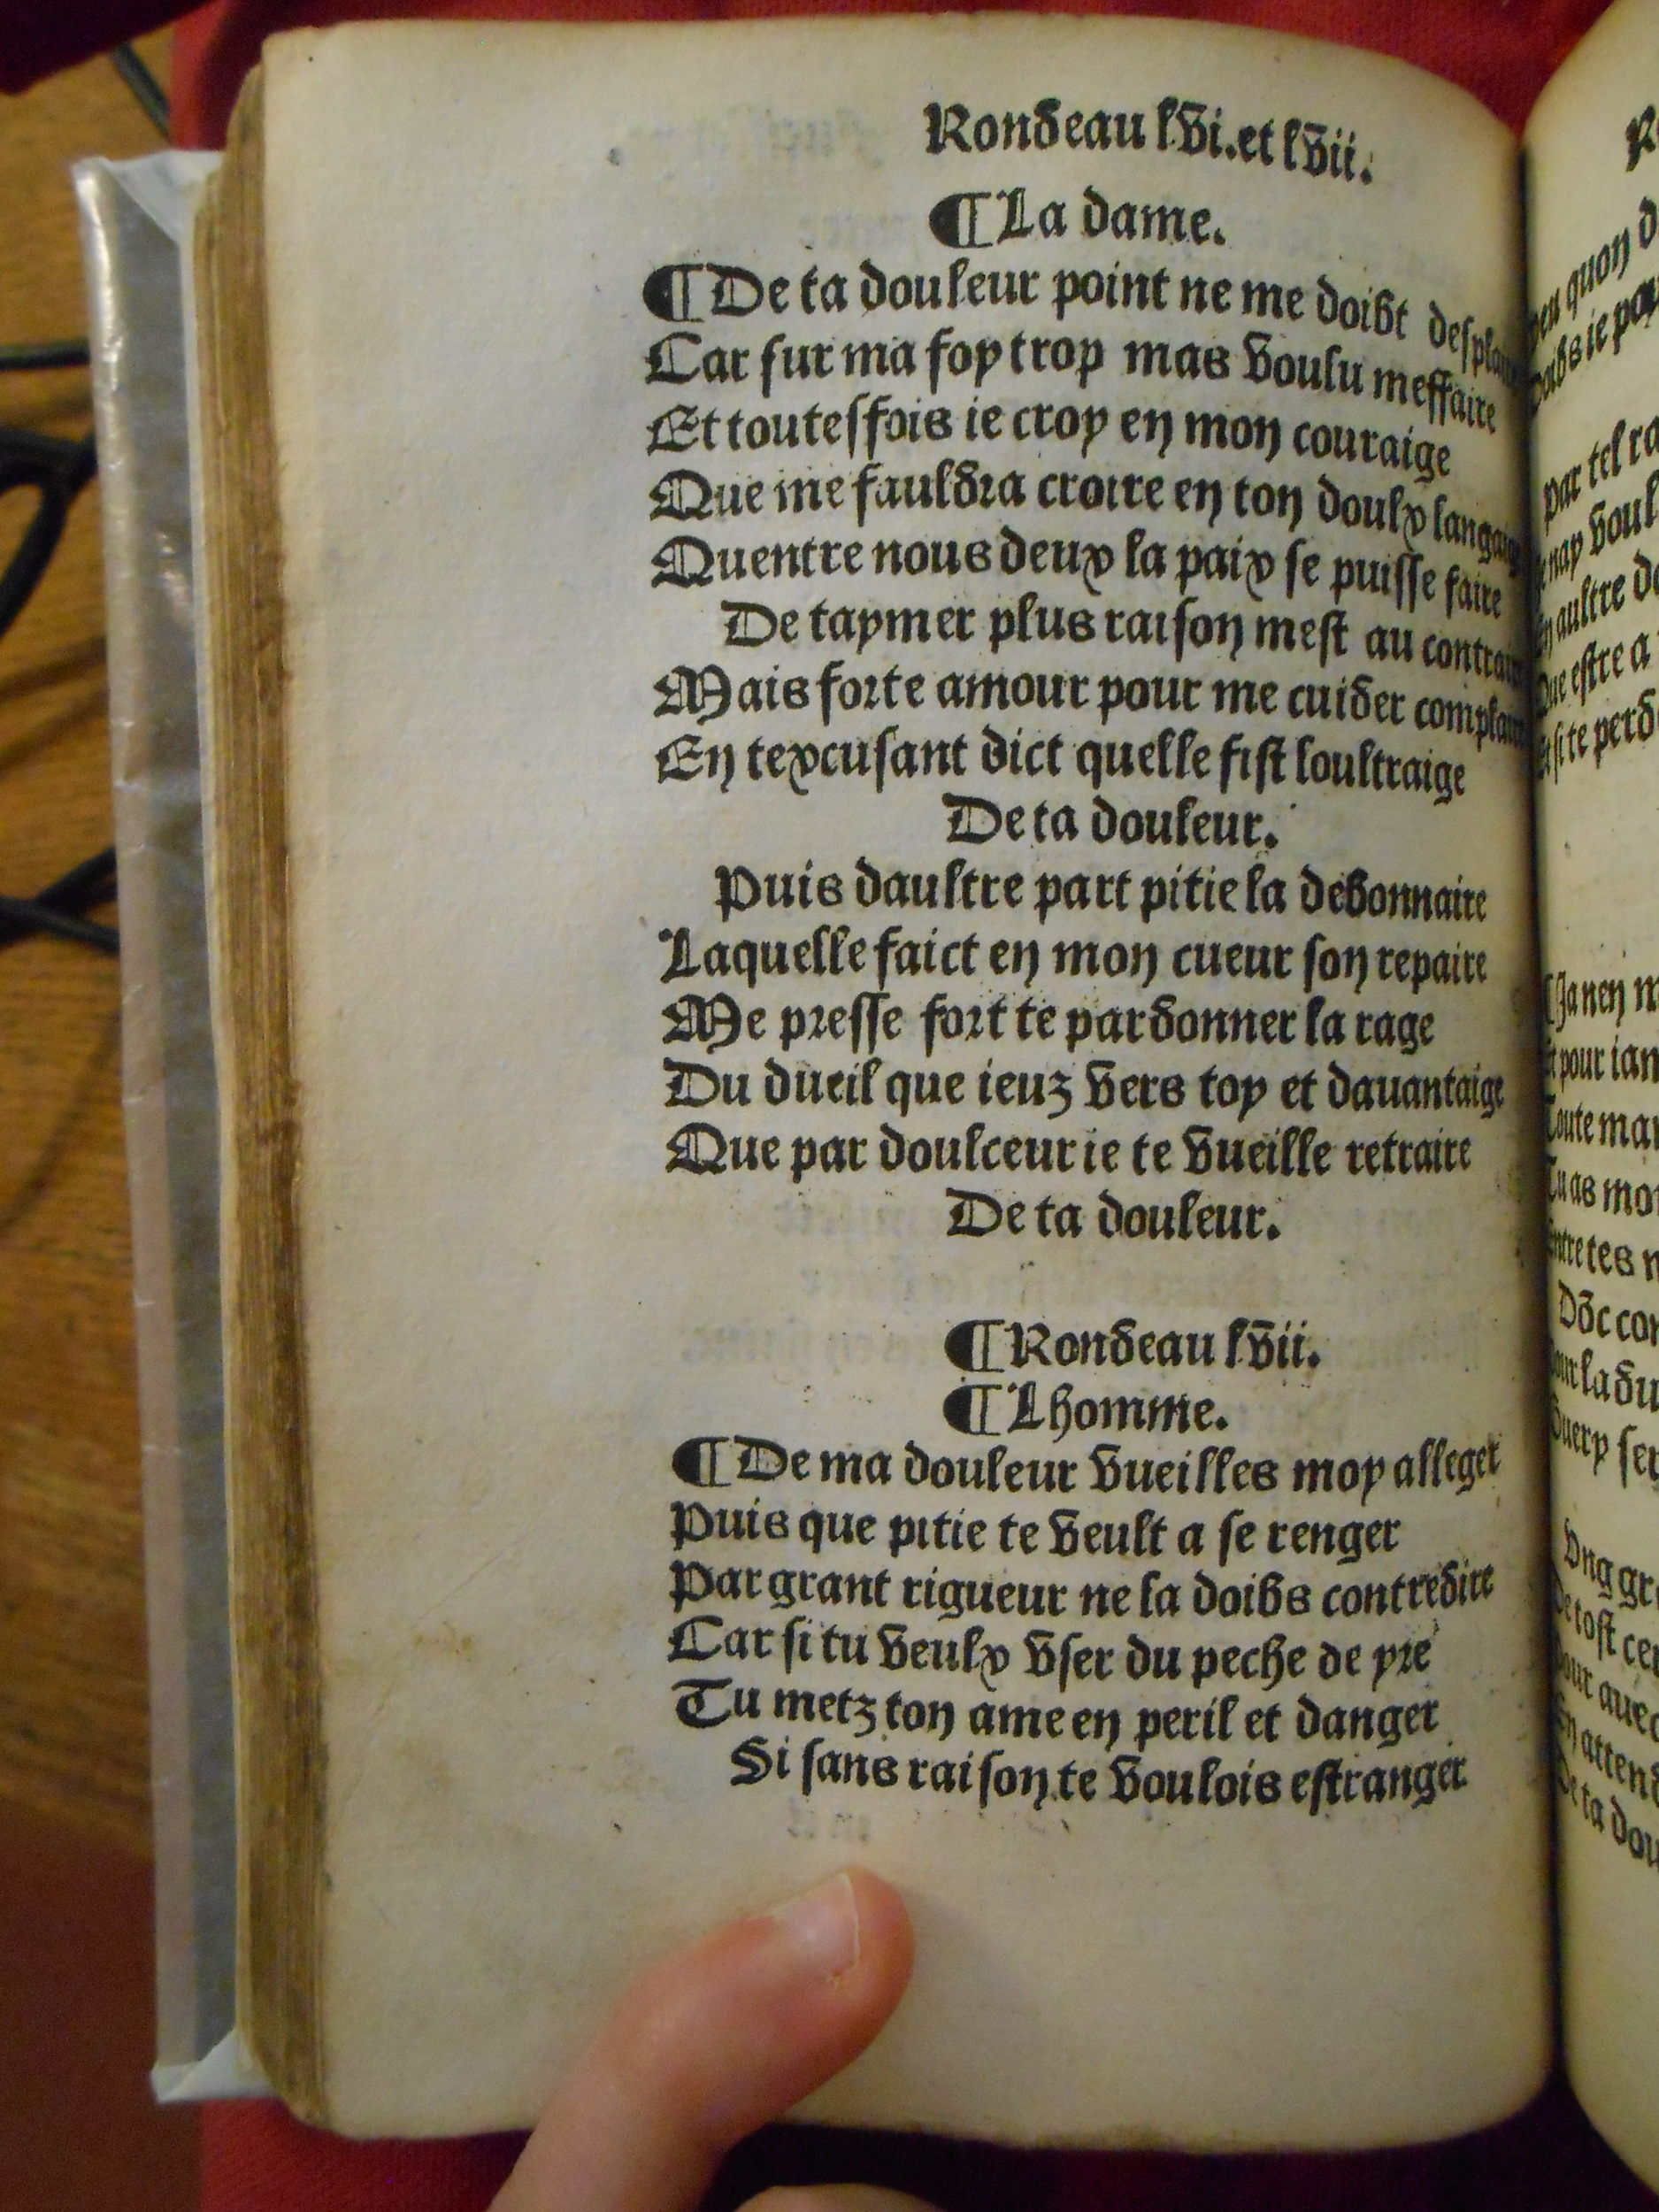 Rondeau lvi. et lvii.
¶ La dame.
¶ De ta douleur point ne me doibt
Car sur ma foy trop mas voulu meffaire
Et toutesfois ie croy en mon couraige
Que me fauldra croire en ton doulx
Quentre nous deux la paix se puisse faire
De taymer plus raison mest au
Mais forte amour pour me cuider
En texcusant dict quelle fist loultraige
De ta douleur.
Puis daultre part pitie la debonnaire
Laquelle faict en mon cueur son repaire
Me presse fort te pardonner la rage
Du dueil que ieuz vers toy et dauantaige
Que par doulceur ie te vueille retraire
De ta douleur.
¶ Rondeau lvii.
¶ Lhomme.
¶ De ma douleur vueilles moy alleger
Puis que pitie te veult a se renger
Par grant rigueur ne la doibs contredire
Car si tu veulx vser du peche de yre
Tu metz ton ame en peril et danger
Si sans raison te voulois estranger
quon
ie
par tel
nay
aultre
estre a
si te
Ja nen
pour
Toute
Tu as
tes
Dõc

Vng

De ta